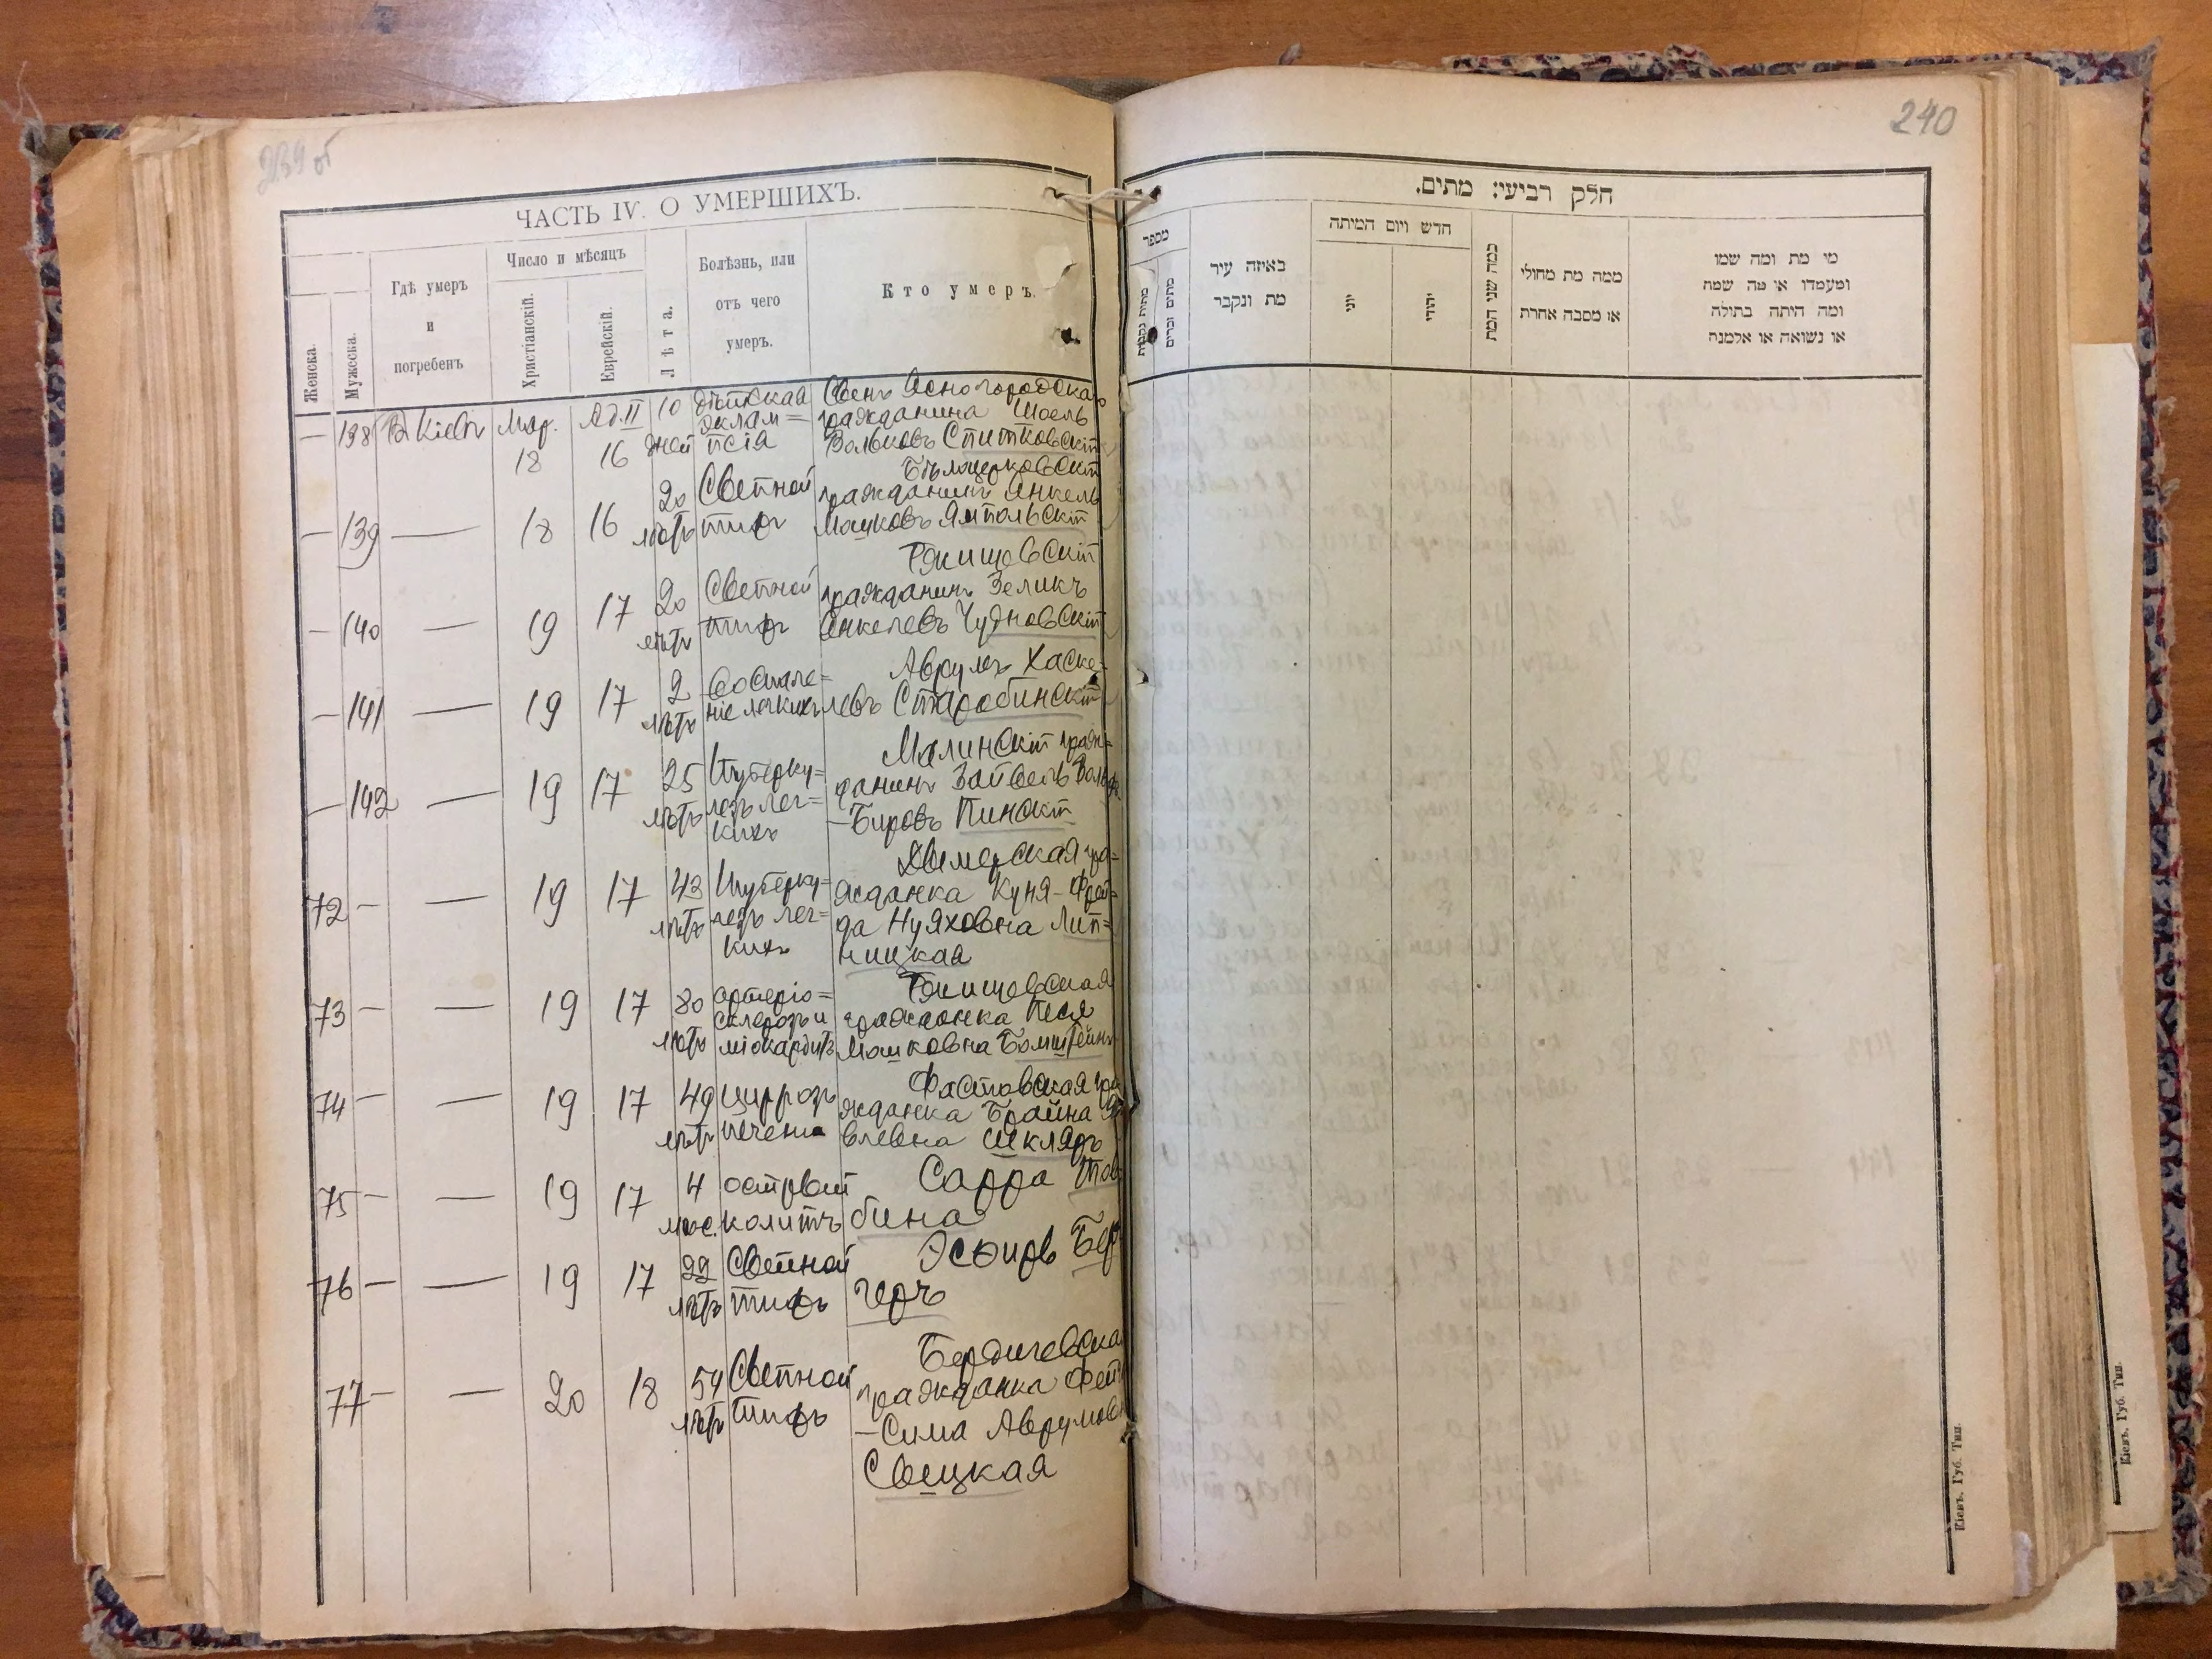 239 об
ЧАСТЬ IV. О УМЕРШИХЪ.
Женска.
Мужеска.
Гдѣ умеръ
и
погребенъ
Число и мѣсяцъ
Христіанскій.
Еврейскій.
Лѣта.
Болѣзнь, или
отъ чего
умеръ.
Кто умеръ.
— 138 В Кіевѣ Мар. 18 Ад. II 16 10 дней дѣтская
эклам=
псія
Сынъ Ясногородскаго
гражданина Шоель
Вольковъ Спитковскій
— 139 — 18 16 20 лѣтъ Сыпной
тифъ
Бѣлоцерковскій
гражданинъ Янкель
Мошковъ Ямпольскій
— 140 — 19 17 20 лѣтъ Сыпной
тифъ
Ржищевскій
гражданинъ Зеликъ
Янкелевъ Чудновскій
— 141 — 19 17 2 лѣтъ Воспале=
ніе легкихъ
Аврумъ Хаске=
левъ Старобинскій
— 142 — 19 17 25 лѣтъ Туберку=
лезъ лег=
кихъ
Малинскій граж=
данинъ Зайвель Вольф
—Бировъ Пинскій
72 — — 19 17 43 лѣтъ Туберку=
лезъ лег=
кихъ
Дымерская гра=
жданка Куня-Фрей=
да Нуяховна Лип=
ницкая
73 — — 19 17 80 лѣтъ артеріо=
склерозъ и
міокардитъ
Ржищевская
гражданка Песя
Мошковна Бомштейнъ
74 — — 19 17 49 лѣтъ Циррозъ
печени
Фастовская гра
жданка Брайна
влевна Шкляръ
75 — — 19 17 4 мѣс. острый
колитъ
Сарра Тов
бина
76 — — 19 17 22 лѣтъ Сыпной
тифъ
Эсфирь Бер
геръ
77 — — 20 18 54 лѣтъ Сыпной
тифъ
Бердичевская
гражданка Фейг
—Сима Аврумовн
Свецкая
240
חלק רביעי: מתים.
מספר
מתות נקבות
מתים זכרים
באיזה עיר
מת ונקבר
חדש ויום המיתה
יוני
יהודי
כמה שני המת
ממה מת מחולי
או מסבה אחרת
מי מת ומה שמו
ומעמדו או מה שמה
ומה היתה בתולה
או נשואה או אלמנה
Кіевъ. Губ. Тип.
Кіевъ. Губ. Тип.